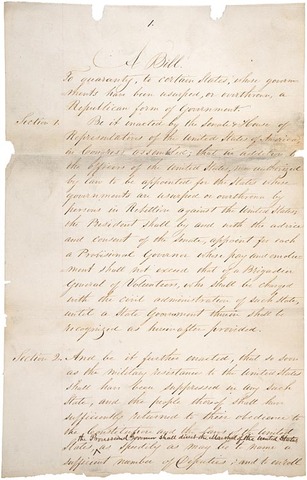 1.
A Bill
To guaranty, to certain States, whose govern
ments have been usurped, or overthrown, a
Republican form of Government.
Section 1. Be it enacted by the Senate & House of
Representatives of the United States of America
in Congress assembled; that in
the Officers of the United States, now authorized
by law to be appointed for the States whose
governments are usurped or overthrown by
persons in Rebellion against the United States,
the President shall by and with the advice
and consent of the Senate, appoint for each
a Provisional Governor whose pay and emolu
ment shall not exceed that of a Brigadier
General of Volunteers, who shall be charged
with the civil administration of such State,
until a State Government therein shall be
recognized as hereinafter provided.
Section 2. And be it further enacted, that so soon
as the military resistance to the United States
shall have been suppressed in any such
State, and the people thereof shall have
sufficiently returned to their obedience to
the Constitution and the Laws of the United
the Provisional Governor shall direct the Marshal of the United States
States, as speedily as may be to name a
sufficient number of Deputies; and to enroll